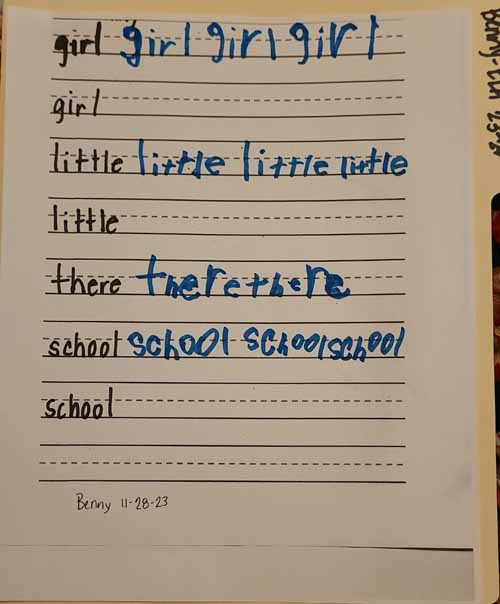 girl girl girl girl
girl
little little little little
little
there there there
school school school school
school
Benny 11-28-23